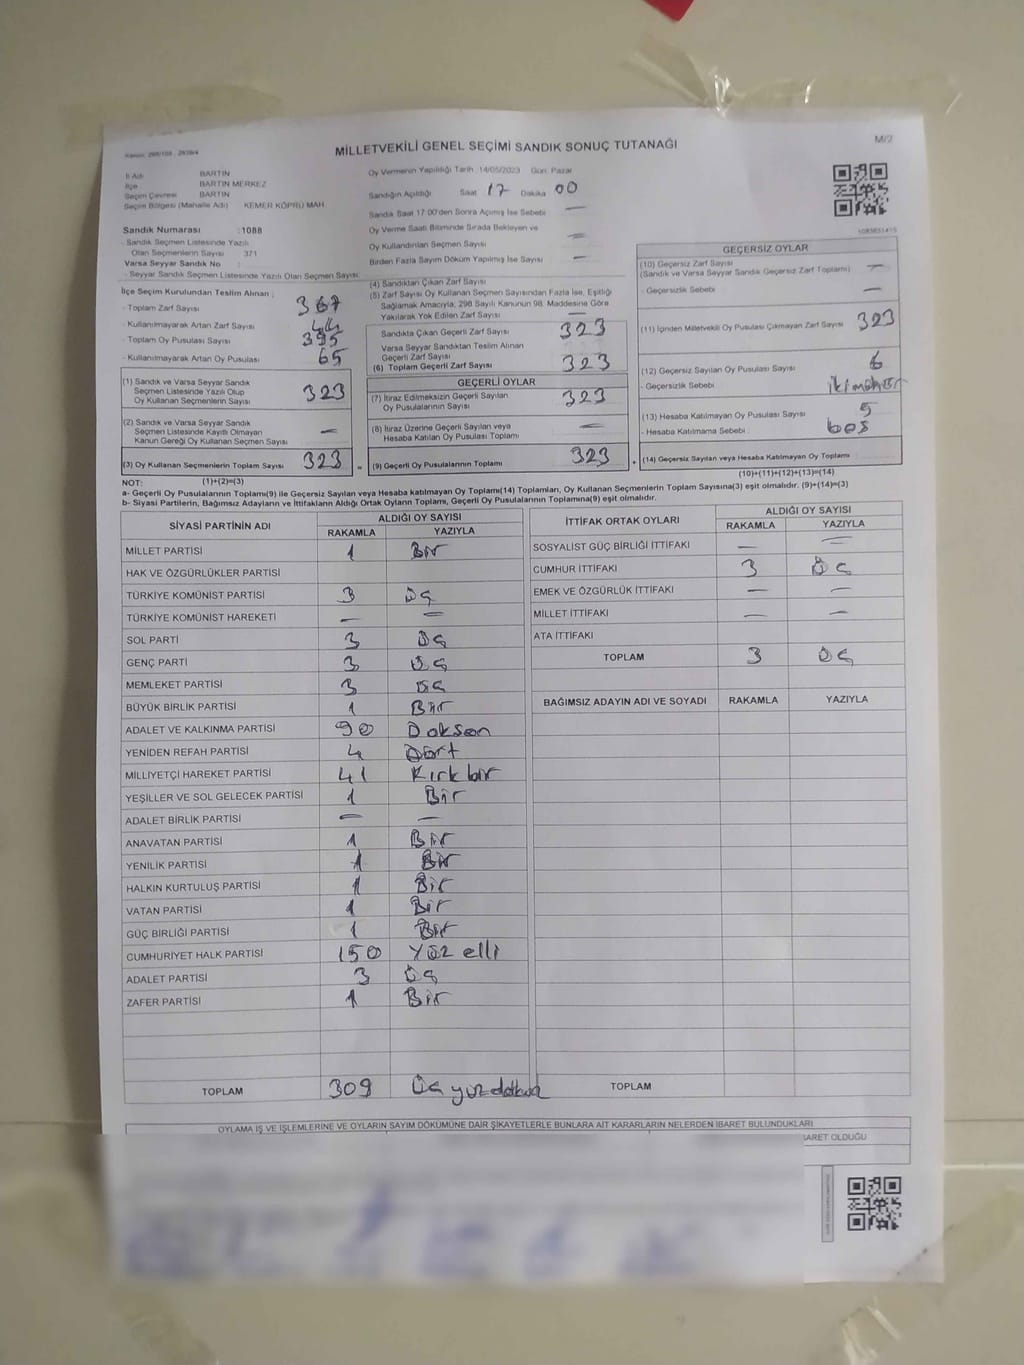 MİLLETVEKİLİ GENEL SEÇİMİ SANDIK SONUÇ TUTANAĞI
M/2
İl Adı BARTIN
İlçe BARTIN MERKEZ
Seçim Çevresi BARTIN
Seçim Bölgesi (Mahalle Adı) KEMER KÖPRÜ MAH.
Sandık Numarası :1088
- Sandık Seçmen Listesinde Yazılı
Olan Seçmenlerin Sayısı 371
Varsa Seyyar Sandık No :
- Seyyar Sandık Seçmen Listesinde Yazılı Olan Seçmen Sayısı:
Oy Vermenin Yapıldığı Tarih 14/05/2023 Gün: Pazar
Sandığın Açıldığı Saat 17 Dakika 00
Sandık Saat 17.00'den Sonra Açılmış İse Sebebi —
Oy Verme Saati Bitiminde Sırada Bekleyen ve
Oy Kullandırılan Seçmen Sayısı —
Birden Fazla Sayım Döküm Yapılmış İse Sayısı —
İlçe Seçim Kurulundan Teslim Alınan :
- Toplam Zarf Sayısı 367
- Kullanılmayarak Artan Zarf Sayısı 44
- Toplam Oy Pusulası Sayısı 395
- Kullanılmayarak Artan Oy Pusulası 65
(1) Sandık ve Varsa Seyyar Sandık
Seçmen Listesinde Yazılı Olup
Oy Kullanan Seçmenlerin Sayısı 323
(2) Sandık ve Varsa Seyyar Sandık
Seçmen Listesinde Kaydı Olmayan
Kanun Gereği Oy Kullanan Seçmen Sayısı —
(3) Oy Kullanan Seçmenlerin Toplam Sayısı 323
(4) Sandıktan Çıkan Zarf Sayısı
(5) Zarf Sayısı Oy Kullanan Seçmen Sayısından Fazla İse, Eşitliği
Sağlamak Amacıyla, 298 Sayılı Kanunun 98. Maddesine Göre
Yakılarak Yok Edilen Zarf Sayısı —
Sandıkta Çıkan Geçerli Zarf Sayısı 323
Varsa Seyyar Sandıktan Teslim Alınan
Geçerli Zarf Sayısı
(6) Toplam Geçerli Zarf Sayısı 323
GEÇERLİ OYLAR
(7) İtiraz Edilmeksizin Geçerli Sayılan
Oy Pusulalarının Sayısı 323
(8) İtiraz Üzerine Geçerli Sayılan veya
Hesaba Katılan Oy Pusulası Toplamı —
= (9) Geçerli Oy Pusulalarının Toplamı 323
GEÇERSİZ OYLAR
(10) Geçersiz Zarf Sayısı
(Sandık ve Varsa Seyyar Sandık Geçersiz Zarf Toplamı) —
- Geçersizlik Sebebi —
(11) İçinden Milletvekili Oy Pusulası Çıkmayan Zarf Sayısı 323
(12) Geçersiz Sayılan Oy Pusulası Sayısı 6
- Geçersizlik Sebebi iki mühür
(13) Hesaba Katılmayan Oy Pusulası Sayısı 5
- Hesaba Katılmama Sebebi boş
+ (14) Geçersiz Sayılan veya Hesaba Katılmayan Oy Toplamı
(10)+(11)+(12)+(13)=(14)
NOT: (1)+(2)=(3)
a- Geçerli Oy Pusulalarının Toplamı(9) ile Geçersiz Sayılan veya Hesaba katılmayan Oy Toplamı(14) Toplamları, Oy Kullanan Seçmenlerin Toplam Sayısına(3) eşit olmalıdır. (9)+(14)=(3)
b- Siyasi Partilerin, Bağımsız Adayların ve İttifakların Aldığı Ortak Oyların Toplamı, Geçerli Oy Pusulalarının Toplamına(9) eşit olmalıdır.
SİYASİ PARTİNİN ADI ALDIĞI OY SAYISI
RAKAMLA YAZIYLA
MİLLET PARTİSİ 1 Bir
HAK VE ÖZGÜRLÜKLER PARTİSİ
TÜRKİYE KOMÜNİST PARTİSİ 3 Üç
TÜRKİYE KOMÜNİST HAREKETİ — —
SOL PARTİ 3 Üç
GENÇ PARTİ 3 Üç
MEMLEKET PARTİSİ 3 Üç
BÜYÜK BİRLİK PARTİSİ 1 Bir
ADALET VE KALKINMA PARTİSİ 90 Doksan
YENİDEN REFAH PARTİSİ 4 Dört
MİLLİYETÇİ HAREKET PARTİSİ 41 Kırk bir
YEŞİLLER VE SOL GELECEK PARTİSİ 1 Bir
ADALET BİRLİK PARTİSİ — —
ANAVATAN PARTİSİ 1 Bir
YENİLİK PARTİSİ 1 Bir
HALKIN KURTULUŞ PARTİSİ 1 Bir
VATAN PARTİSİ 1 Bir
GÜÇ BİRLİĞİ PARTİSİ 1 Bir
CUMHURİYET HALK PARTİSİ 150 Yüz elli
ADALET PARTİSİ 3 Üç
ZAFER PARTİSİ 1 Bir
TOPLAM 309 Üç yüz dokuz
İTTİFAK ORTAK OYLARI ALDIĞI OY SAYISI
RAKAMLA YAZIYLA
SOSYALİST GÜÇ BİRLİĞİ İTTİFAKI — —
CUMHUR İTTİFAKI 3 Üç
EMEK VE ÖZGÜRLÜK İTTİFAKI — —
MİLLET İTTİFAKI — —
ATA İTTİFAKI
TOPLAM 3 Üç
BAĞIMSIZ ADAYIN ADI VE SOYADI RAKAMLA YAZIYLA
TOPLAM
OYLAMA İŞ VE İŞLEMLERİNE VE OYLARIN SAYIM DÖKÜMÜNE DAİR ŞİKAYETLERLE BUNLARA AİT KARARLARIN NELERDEN İBARET BULUNDUKLARI
BARET OLDUĞU